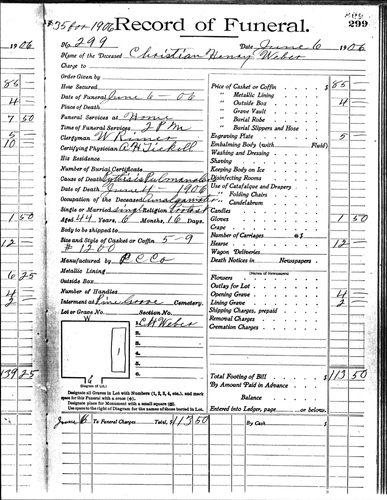 #35 for 1906
Record of Funeral.
299
1906
No. 299
Date June 6 1906
Name of the Deceased Christian Henry Weber
Charge to
Order Given by
How Secured
Date of Funeral June 6 - 06
Place of Death
Funeral Services at Home
Time of Funeral Services 2 P M
Clergyman W
Certifying Physician A H Tickell
His Residence
Number of Burial Certificate
Cause of Death Pulmonalis
Date of Death June 4 - 1906
Occupation of the Deceased Amalgamator
Single or Married Single Religion
Aged 44 Years, 6 Months, 16 Days
Body to be shipped to
Size and Style of Casket or Coffin 5-9
# 1200
Manufactured by P C Co
Metallic Lining
Outside Box
Number of Handles
Interment at Pine Grove Cemetery.
Lot or Grave No. Section No.
W
C H Weber
1.
2.
3.
4.
5.
6.
(Diagram of Lot.)
Designate all Graves in Lot with Numbers (1, 2, 3, 4, etc.), and mark
space for this Funeral with a cross (+).
Designate place for Monument with a small square (□).
Use space to the right of Diagram for the names of those buried in Lot.
Price of Casket or Coffin 85
" Metallic Lining
" Outside Box 4
" Grave Vault
" Burial Robe
" Burial Slippers and Hose
Engraving Plate 5
Embalming Body (with Fluid)
Washing and Dressing
Shaving
Keeping Body on Ice
Disinfecting Rooms
Use of Catafalque and Drapery
" Folding Chairs
" Candelabrum
Candles
Gloves 1 50
Crape
Number of Carriages @ $
Hearse 12
Wagon Deliveries
Death Notices in Newspapers
(Names of Newspapers)
Flowers
Outlay for Lot
Opening Grave 4
Lining Grave 2
Shipping Charges, prepaid
Removal Charges
Cremation Charges
Total Footing of Bill $113 50
By Amount Paid in Advance
Balance
Entered into Ledger, page ...or below.
June 6 To Funeral Charges Total, $113 50
By Cash $
85
4
7 50
5
10
1 50
12
6 25
4
2
139 25